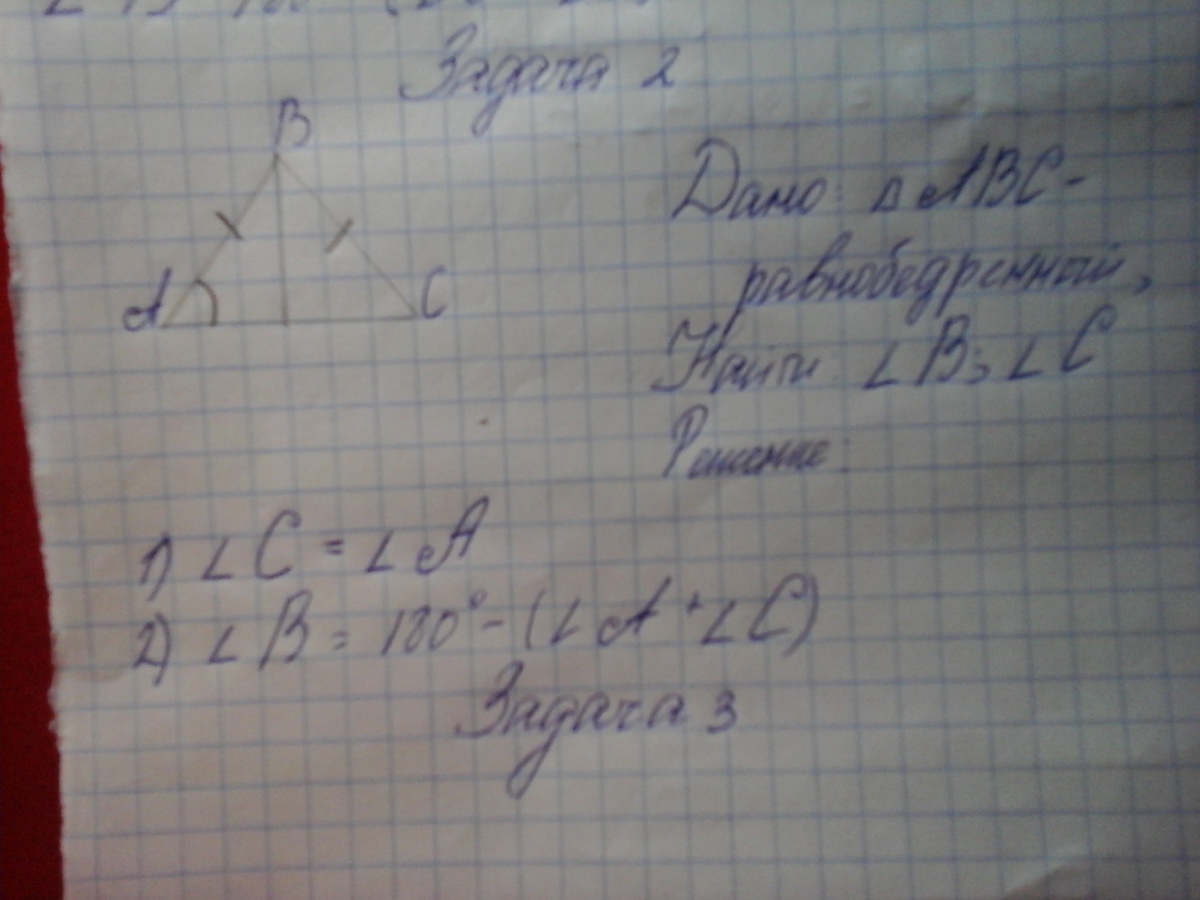 Задача 2
B
A
C
Дано: △ ABC -
равнобедренный,
Найти ∠ B; ∠ C
Решение:
1) ∠ C = ∠ A
2) ∠ B = 180° - (∠ A + ∠ C)
Задача 3